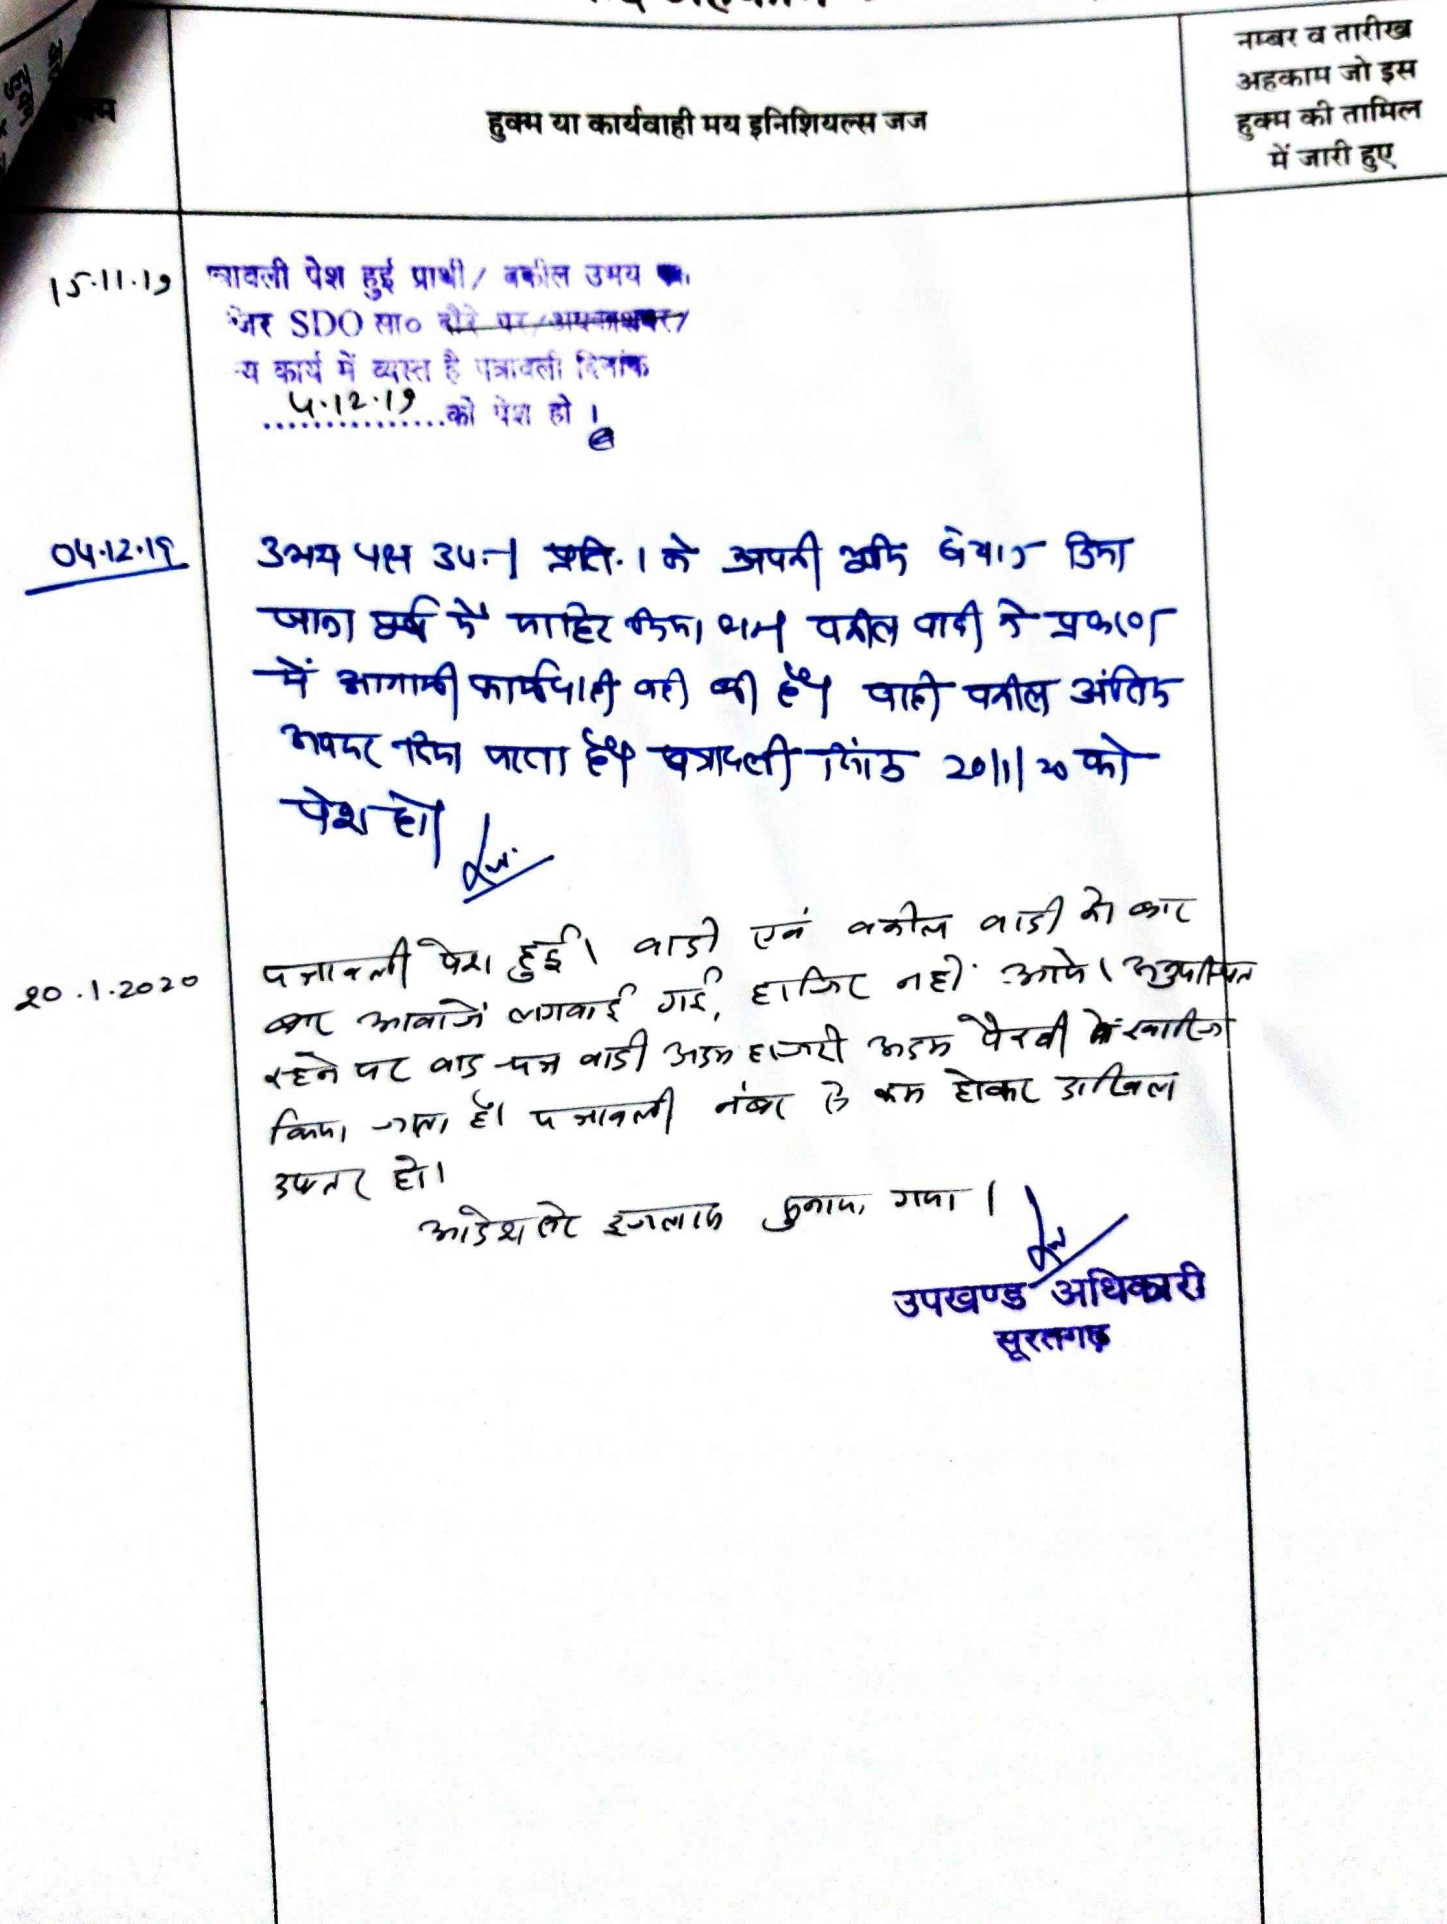 नम्बर व तारीख
अहकाम जो इस
हुक्म की तामिल
में जारी हुए
हुक्म या कार्यवाही मय इनिशियल्स जज
15.11.19
त्रावली पेश हुई प्रार्थी/ वकील उभय
SDO सा० दौरे पर/अवकाशपर/
य कार्य में व्यस्त है पत्रावली दिनांक
4.12.19 को पेश हो।
04.12.19
उभय पक्ष उप.। प्रति.1 ने अपनी
जाना में जाहिर किया वकील वादी ने प्रकरण
में आगामी कार्यवाही नही की है। वादी वकील अंतिम
अवसर दिया जाता है। पत्रावली दिनांक 20/1/20 को
पेश हो।
20.1.2020
पत्रावली पेश हुई। वादी एवं वकील वादी को बार
बार आवाजें लगवाई गई, हाजिर नहीं आये। अनुपस्थित
रहने पर वाद पत्र वादी अदम हाजरी अदम पैरवी में खारिज
किया जाता है। पत्रावली नंबर से कम होकर दाखिल
दफ्तर हो।
आदेश सरे इजलास सुनाया गया।
उपखण्ड अधिकारी
सूरतगढ़